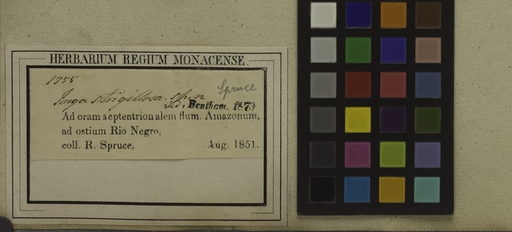 HERBARIUM REGIUM MONACENSE.
1755
Spruce
Inga strigillosa sp. n.
Bentham. 187
Ad oram septentrionalem flum. Amazonum,
ad ostium Rio Negro,
coll. R. Spruce, Aug. 1851.